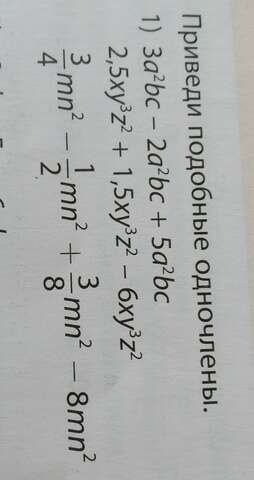 Приведи подобные одночлены.
1) 3a²bc − 2a²bc + 5a²bc
2,5xy³z² + 1,5xy³z² − 6xy³z²
3/4 mn² − 1/2 mn² + 3/8 mn² − 8mn²